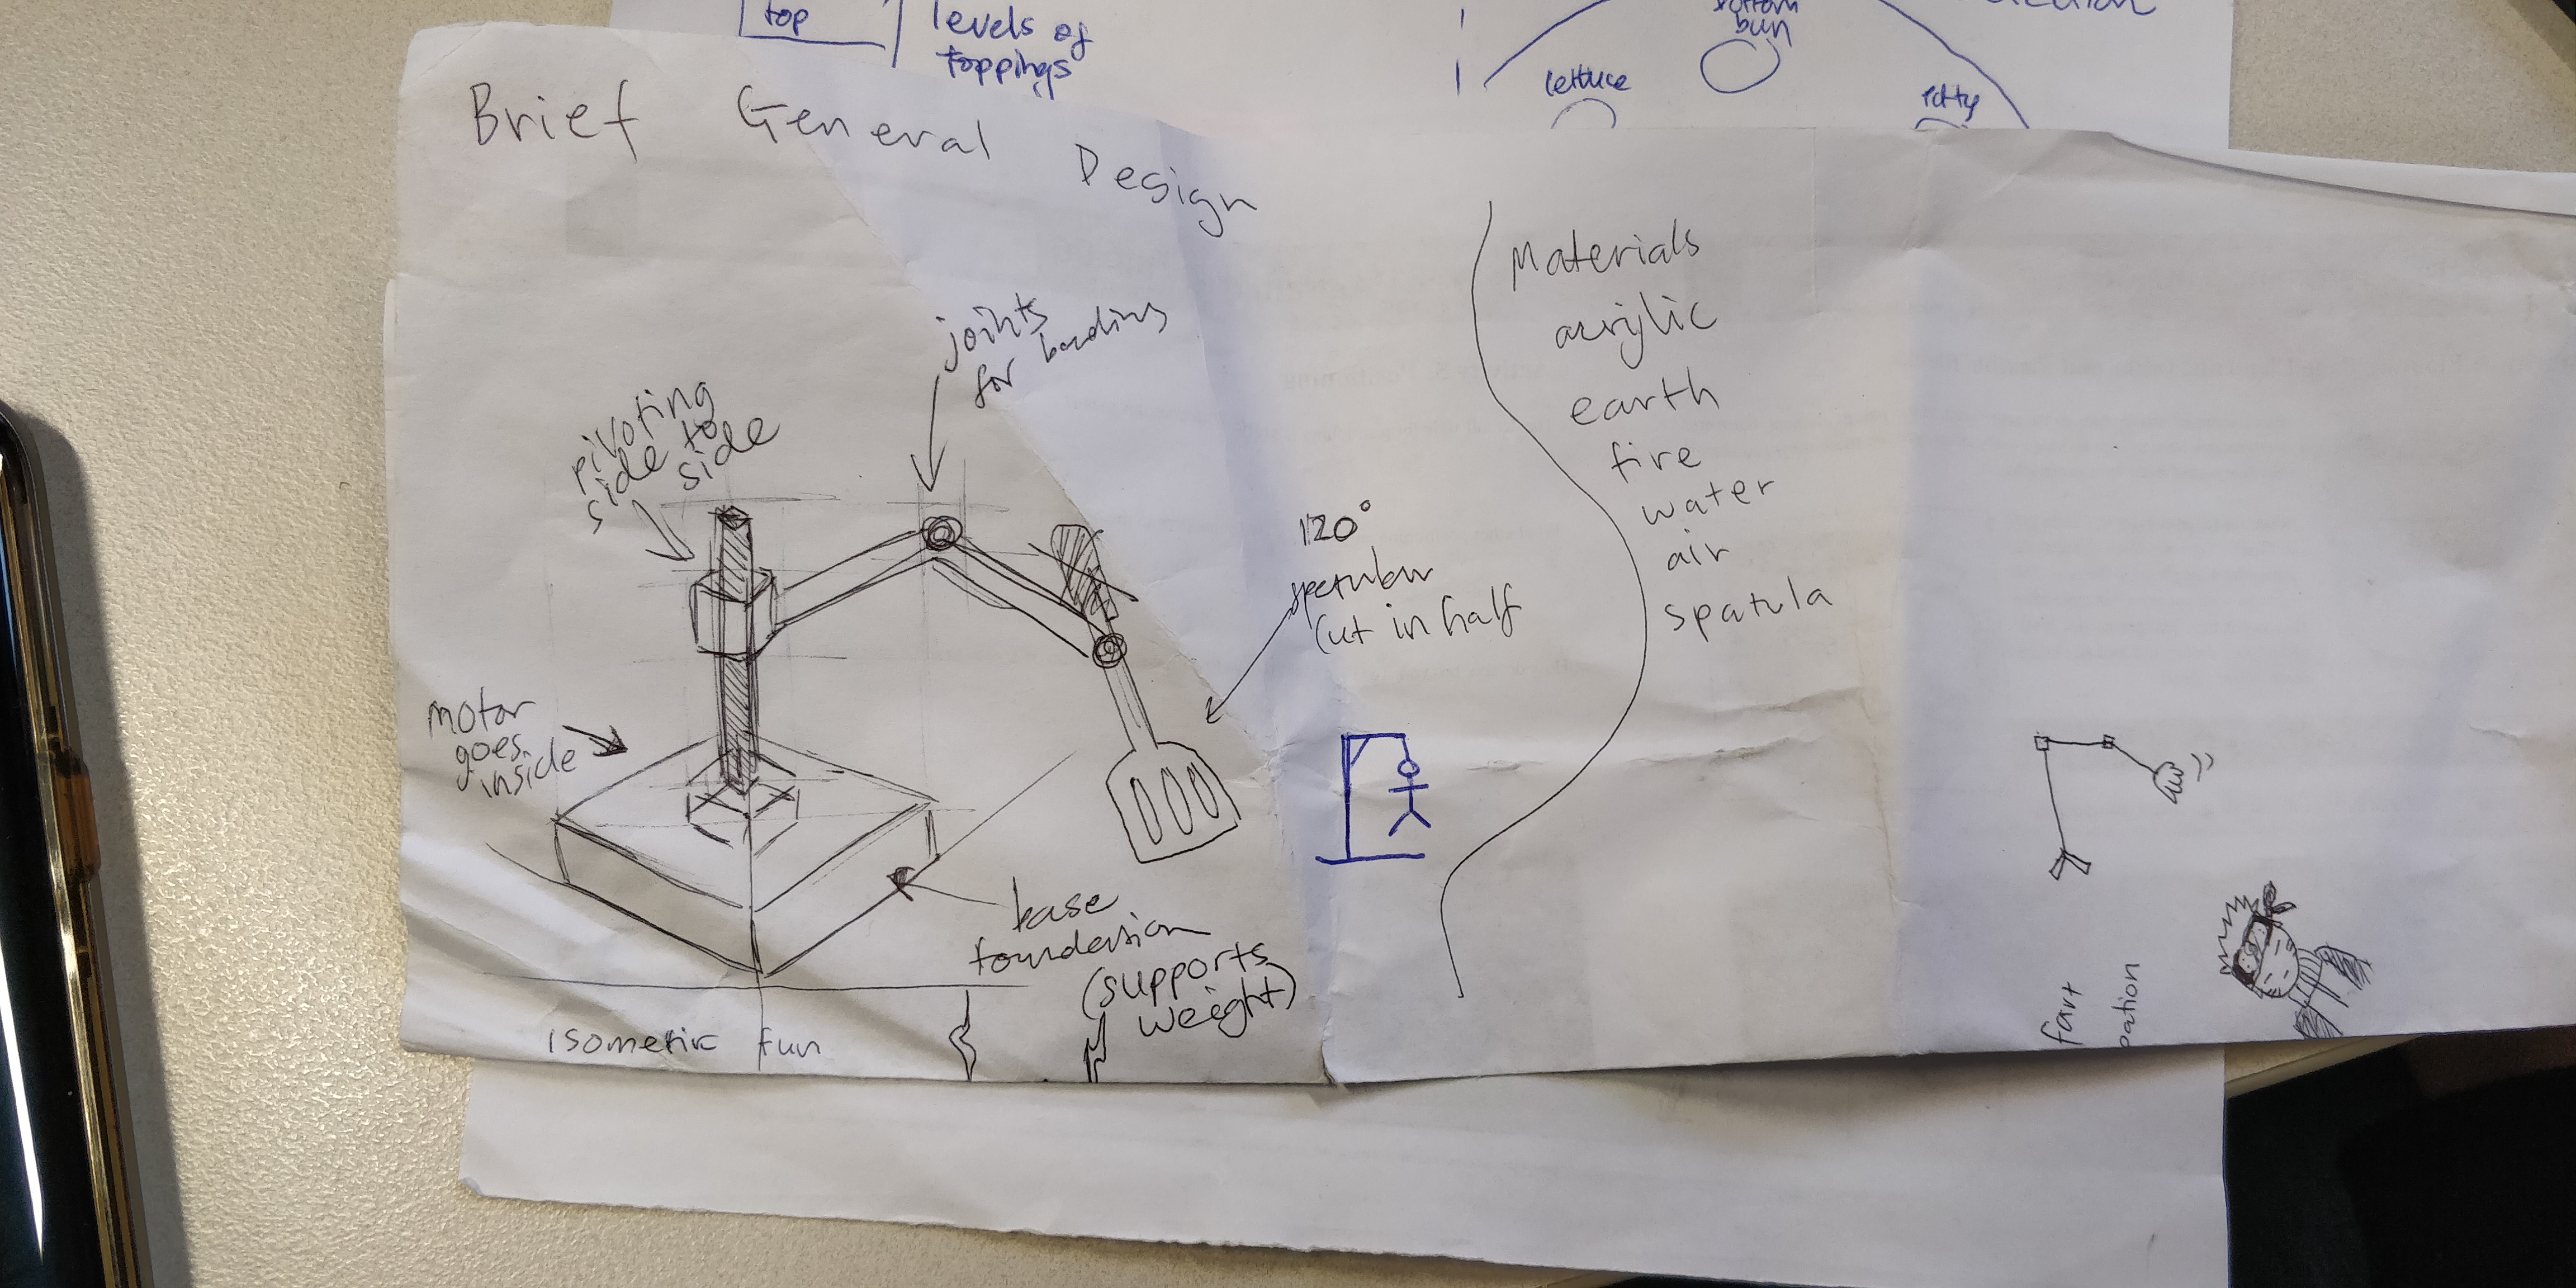 top
levels of
toppings
bottom
bun
lettuce
patty
Brief General Design
joints
for bending
pivoting
side to
side
motor
goes
inside
120°
cut in half
base
(supports
weight)
Isometric fun
Materials
acrylic
earth
fire
water
air
spatula
fart